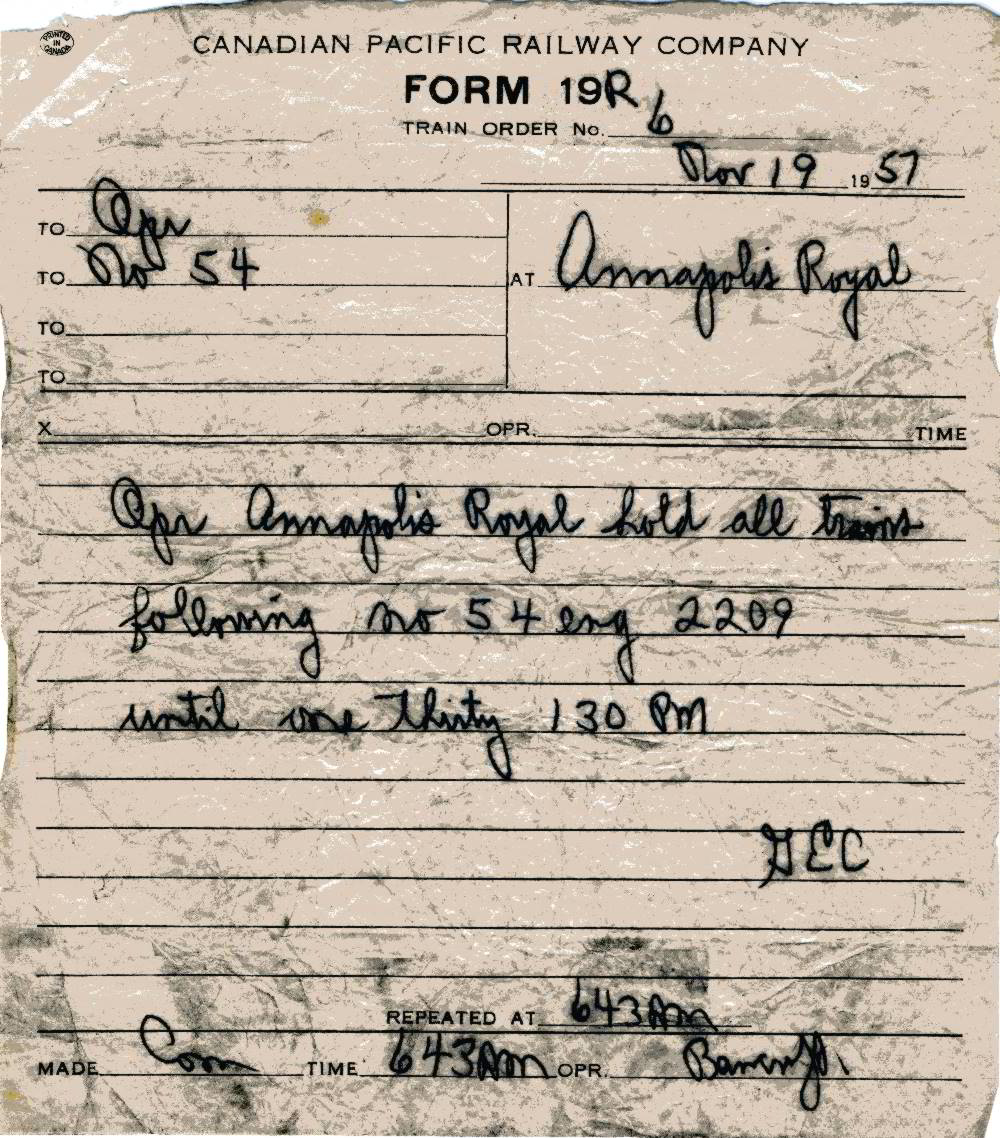 PRINTED IN CANADA
CANADIAN PACIFIC RAILWAY COMPANY
FORM 19R
TRAIN ORDER No. 6
Nov 19 1957
TO Opr
TO No 54
AT Annapolis Royal
TO
TO
X OPR. TIME
Opr Annapolis Royal hold all trains
following no 54 eng 2209
until one thirty 130 PM
GEC
REPEATED AT 643AM
MADE Com TIME 643AM OPR.